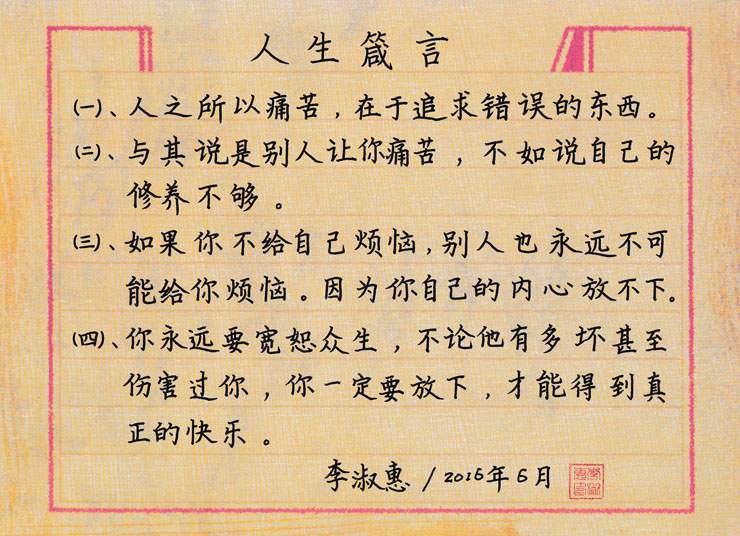 人生箴言
(一)、人之所以痛苦，在于追求错误的东西。
(二)、与其说是别人让你痛苦，不如说自己的
修养不够。
(三)、如果你不给自己烦恼，别人也永远不可
能给你烦恼。因为你自己的内心放不下。
(四)、你永远要宽恕众生，不论他有多坏甚至
伤害过你，你一定要放下，才能得到真
正的快乐。
李淑惠/2016年6月